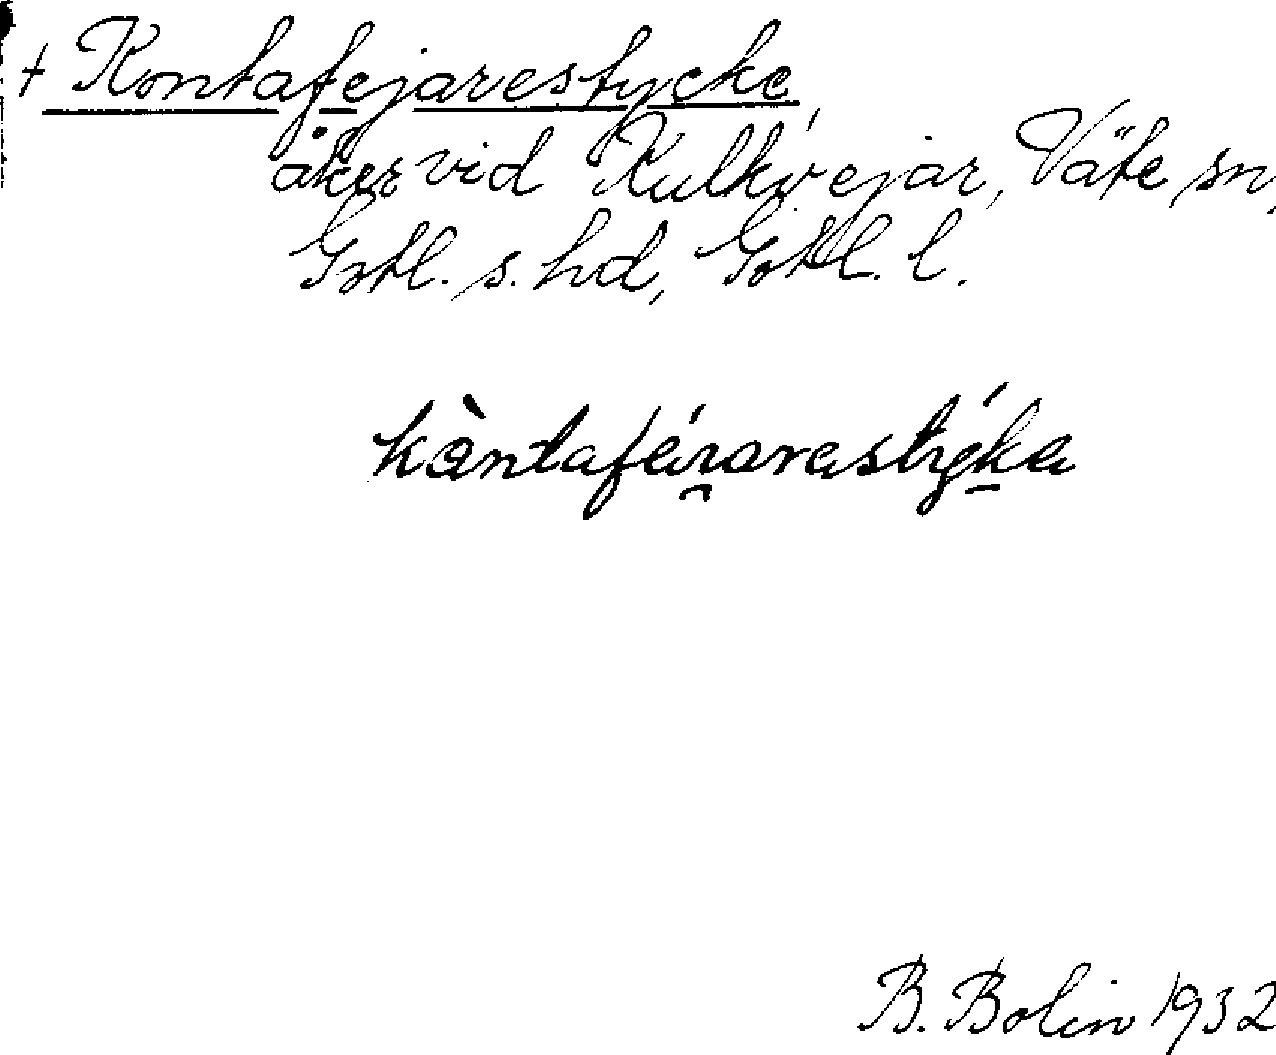 + Kontafejarestycke,
åker vid Kulkvejar, Väte sn,
Gotl. s. hd, Gotl. l.
kòntafáiarastýka
B. Bolin 1932